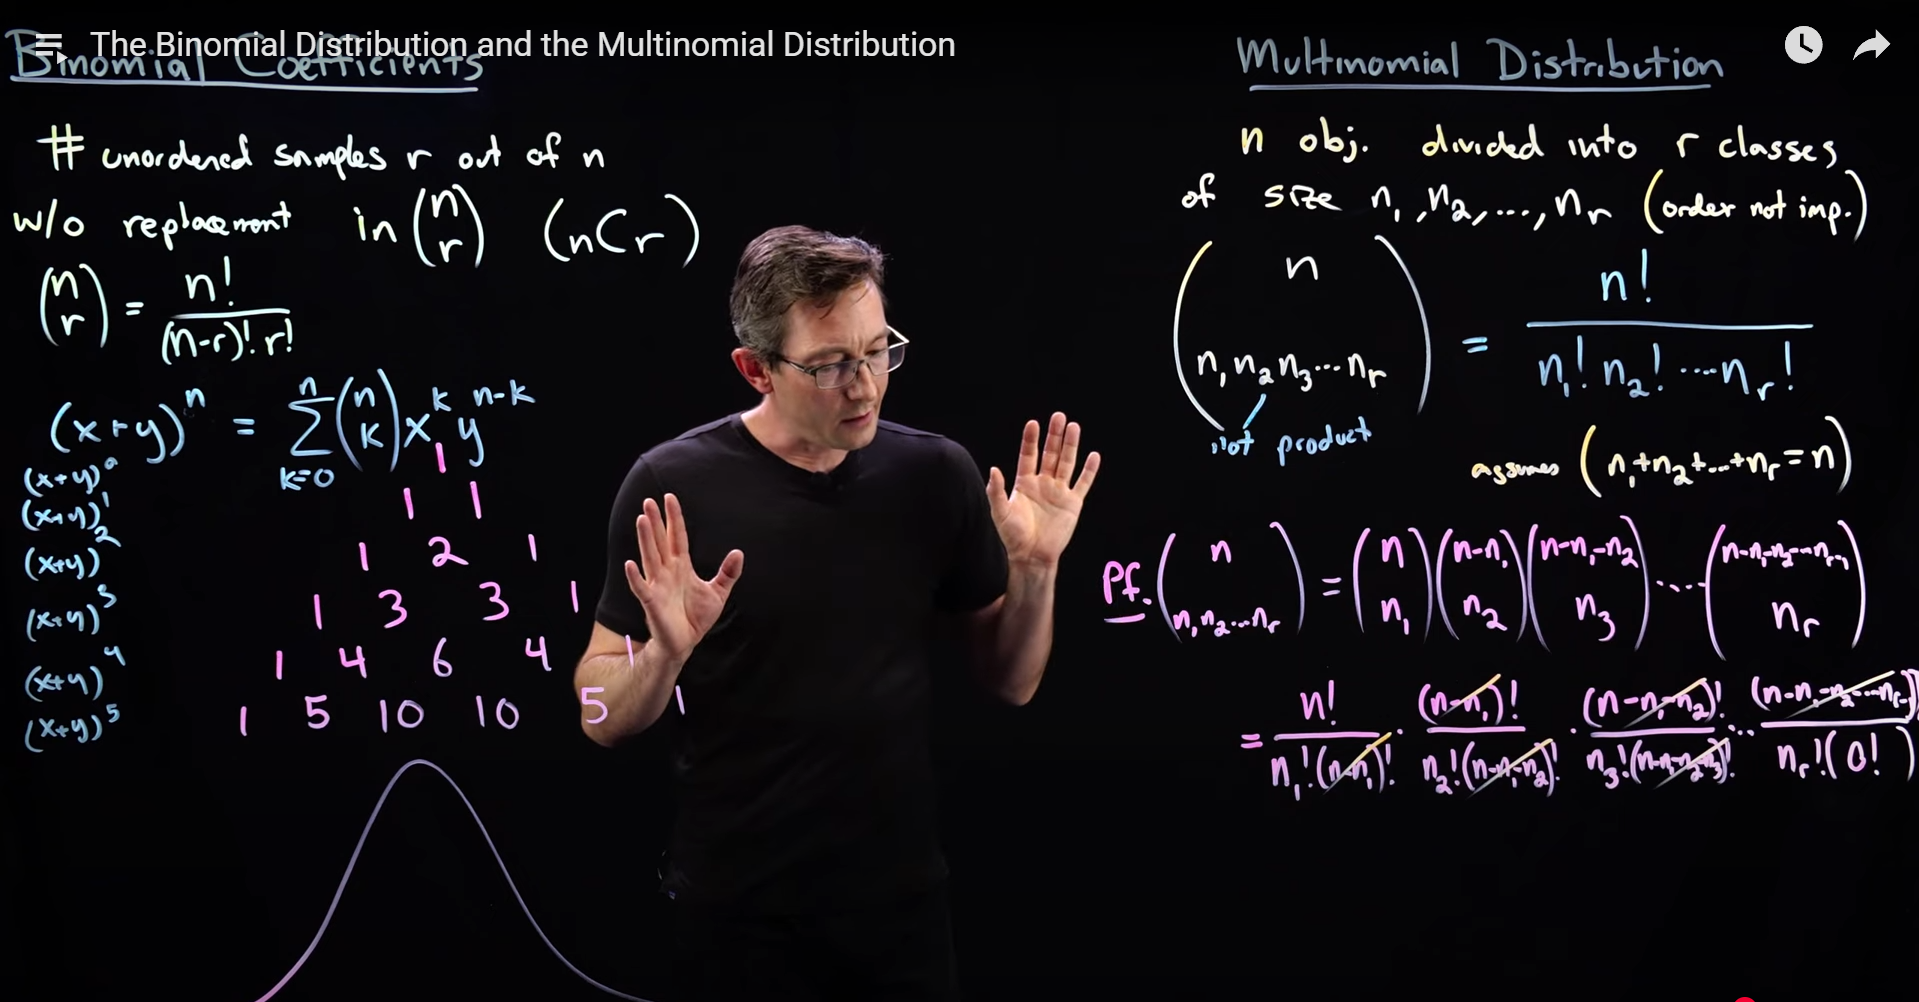 The Binomial Distribution and the Multinomial Distribution
Binomial Coefficients
# unordered samples r out of n
w/o replacement in (n r) (nCr)
(n r) = n! / (n-r)! r!
(x+y)^n = Σ_{k=0}^{n} (n k) x^k y^{n-k}
(x+y)^0 1
(x+y)^1 1 1
(x+y)^2 1 2 1
(x+y)^3 1 3 3 1
(x+y)^4 1 4 6 4 1
(x+y)^5 1 5 10 10 5 1
Multinomial Distribution
n obj. divided into r classes
of size n₁, n₂, ..., nᵣ (order not imp.)
(n n₁ n₂ n₃ ... nᵣ) = n! / n₁! n₂! ... nᵣ!
not product
assumes (n₁+n₂+...+nᵣ=n)
Pf. (n n₁ n₂ ... nᵣ) = (n n₁)(n-n₁ n₂)(n-n₁-n₂ n₃) ... (n-n₁-n₂-...-nᵣ₋₁ nᵣ)
= n! / n₁!(n-n₁)! · (n-n₁)! / n₂!(n-n₁-n₂)! · (n-n₁-n₂)! / n₃!(n-n₁-n₂-n₃)! ... (n-n₁-n₂-...-nᵣ₋₁)! / nᵣ!(0!)